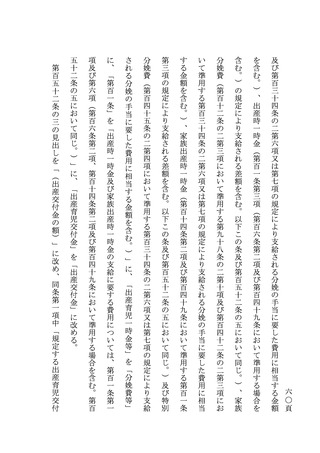 六〇頁
及び第百三十四条の二第六項又は第七項の規定により支給される分娩の手当に要した費用に相当する金額
を含む。)、出産時一時金(第百一条第三項(第百六条第二項及び第百四十九条において準用する場合を
含む。)の規定により支給される差額を含む。以下この条及び第百五十二条の五において同じ。)、家族
分娩費(第百十二条の二第三項において準用する第九十八条の二第十項及び第百十二条の二第三項にお
いて準用する第百三十四条の二第六項又は第七項の規定により支給される分娩の手当に要した費用に相当
する金額を含む。)、家族出産時一時金(第百十四条第二項及び第百四十九条において準用する第百一条
第三項の規定により支給される差額を含む。以下この条及び第百五十二条の五において同じ。)及び特別
分娩費(第百四十五条の二第四項において準用する第百三十四条の二第六項又は第七項の規定により支給
される分娩の手当に要した費用に相当する金額を含む。)」に、「出産育児一時金等」を「分娩費等」
に、「第百一条」を「出産時一時金及び家族出産時一時金の支給に要する費用については、第百一条第一
項及び第六項(第百六条第二項、第百十四条第二項及び第百四十九条において準用する場合を含む。第百
五十二条の五において同じ。)」に、「出産育児交付金」を「出産交付金」に改める。
第百五十二条の三の見出しを「(出産交付金の額)」に改め、同条第一項中「規定する出産育児交付